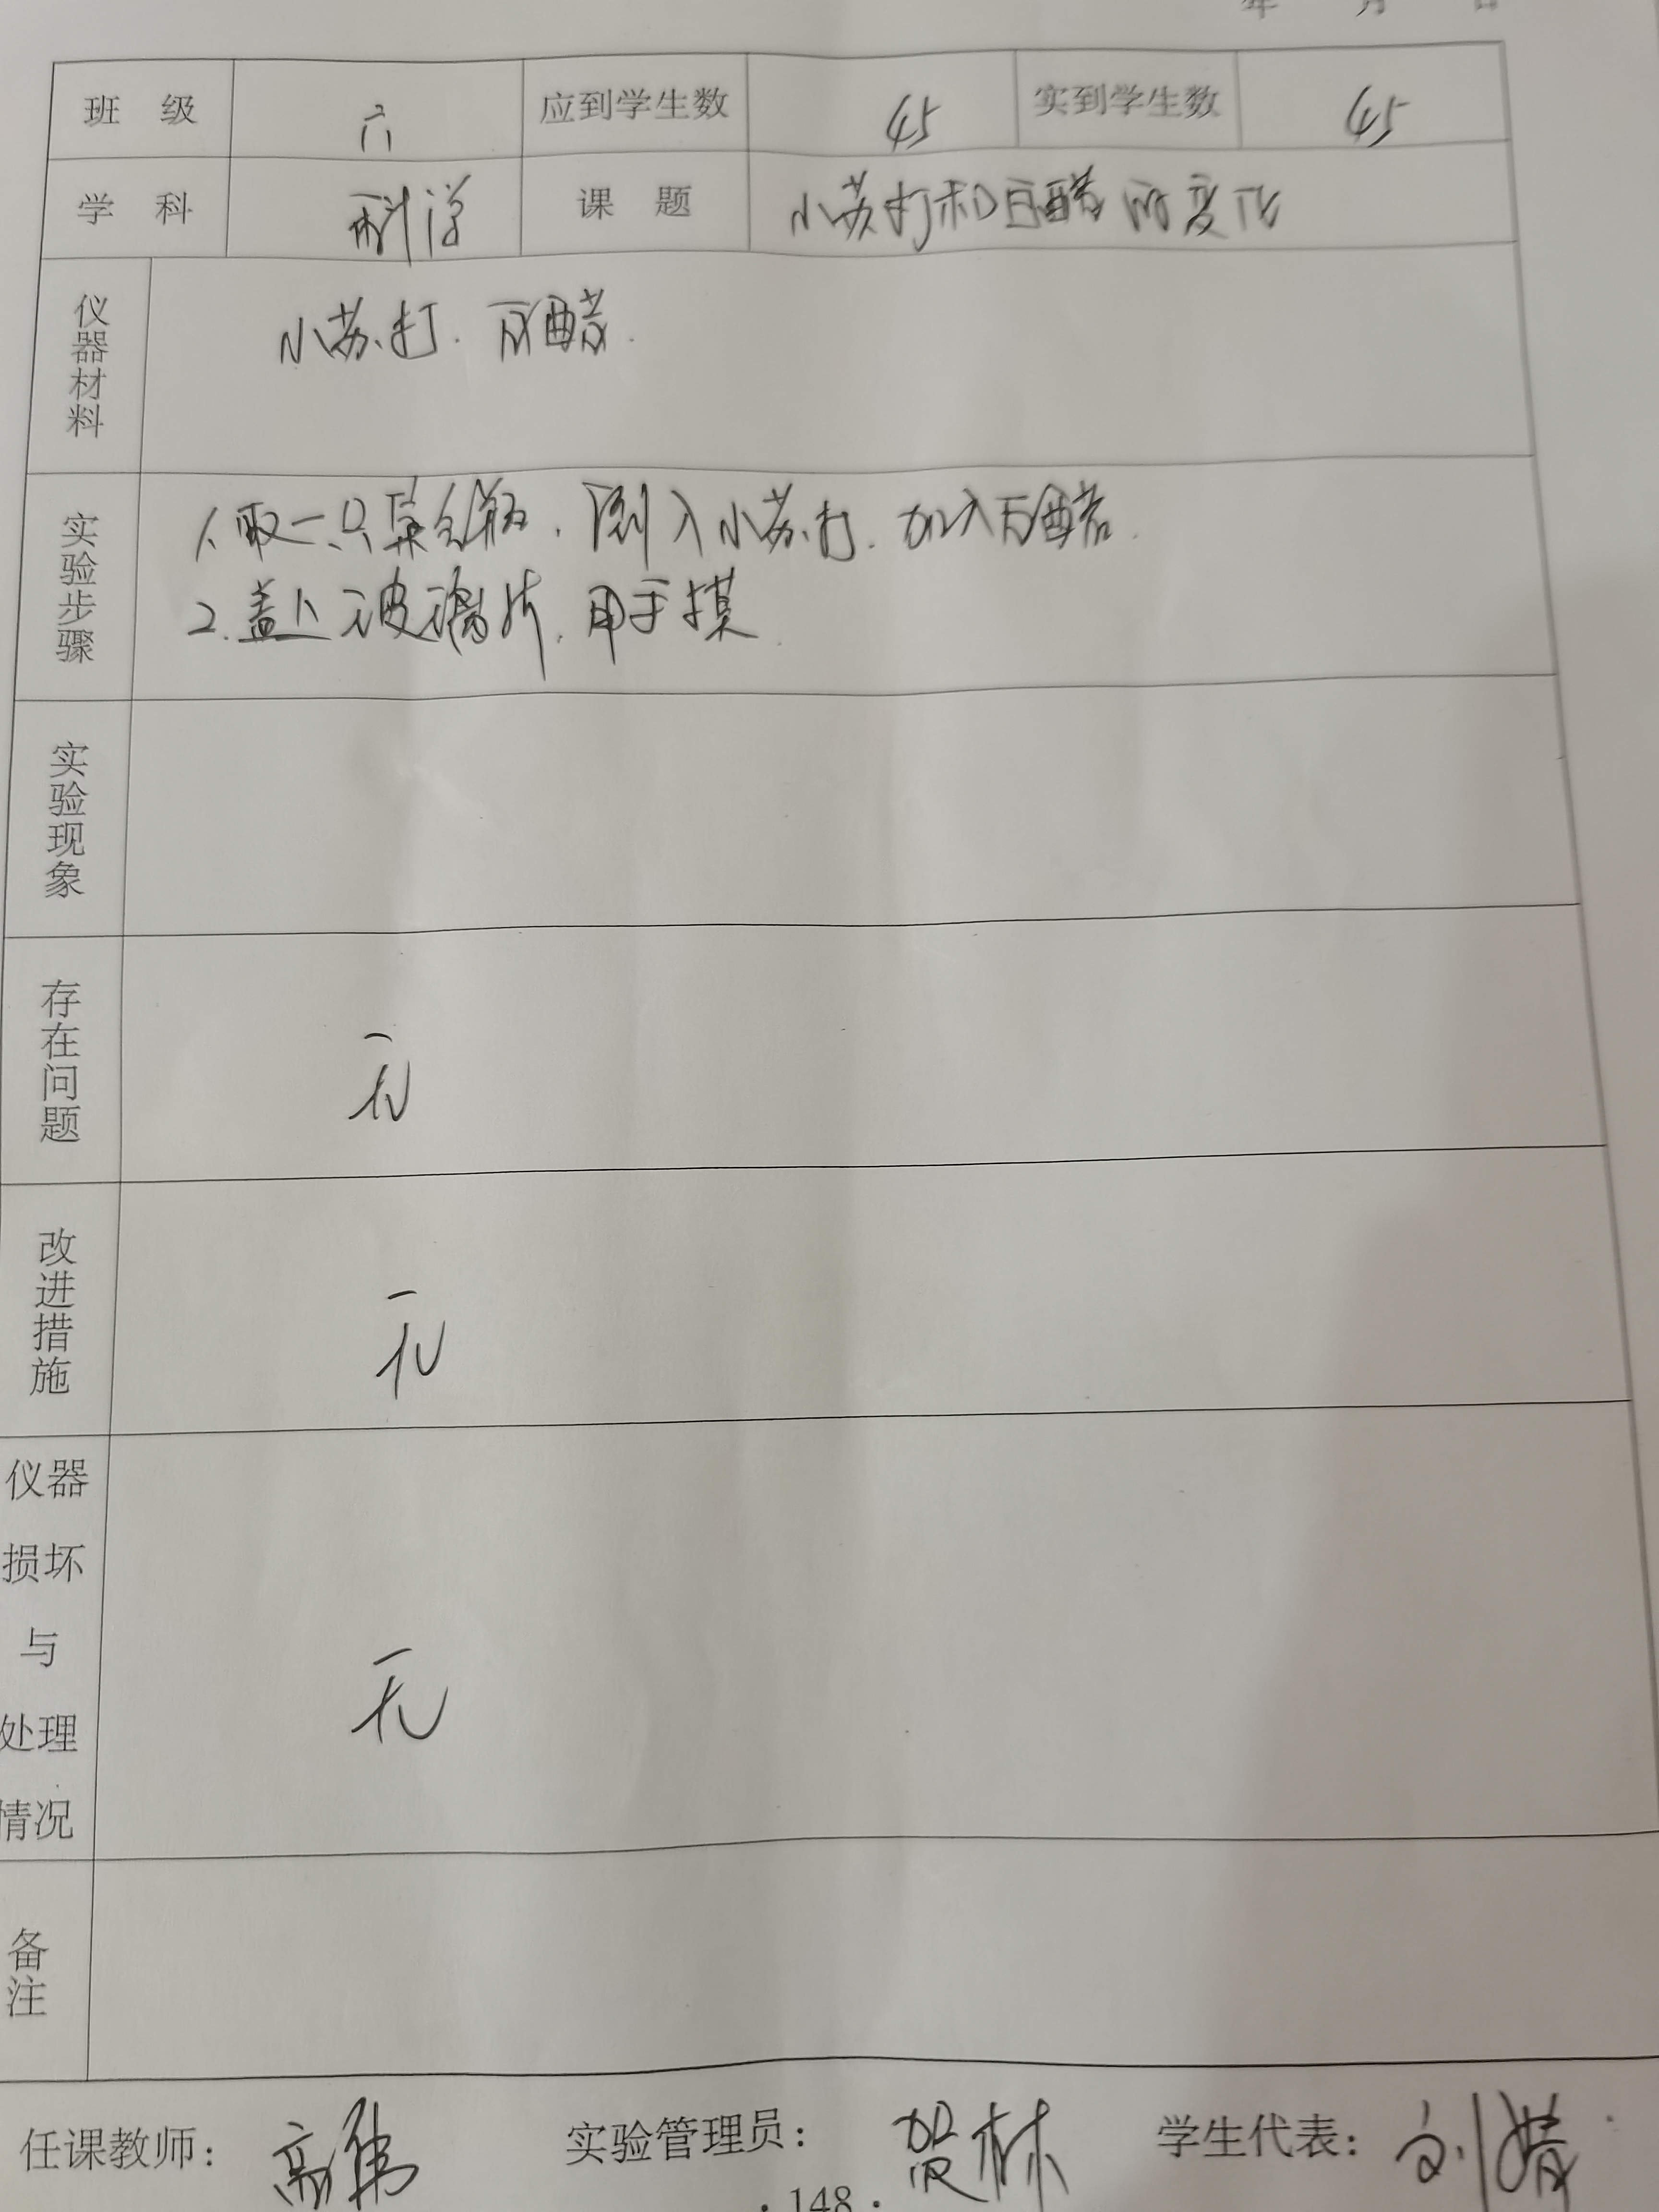 年 月 日
班 级 六 应到学生数 45 实到学生数 45
学 科 科学 课 题 小苏打和白醋的变化
仪器材料 小苏打. 白醋.
实验步骤
1. 取一只集气瓶. 倒入小苏打. 加入白醋.
2. 盖上玻璃片. 用手摸.
实验现象
存在问题 无
改进措施 无
仪器
损坏
与
处理
情况
无
备注
任课教师: 高伟 实验管理员: 贺林 学生代表: 刘婧
· 148 ·